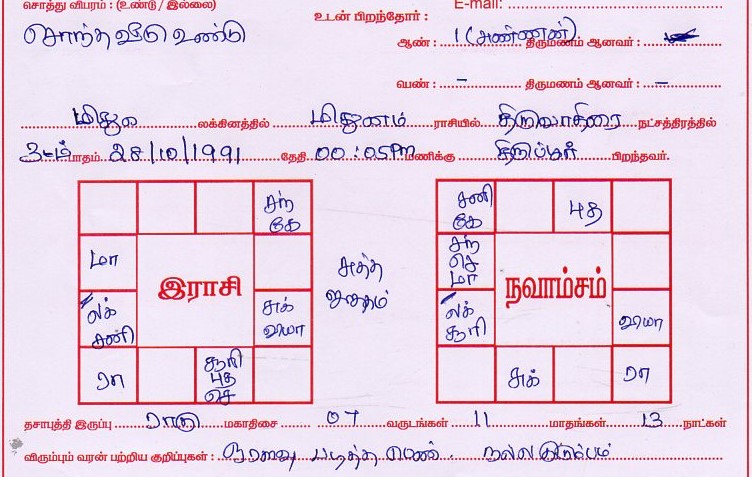 சொத்து விபரம் : (உண்டு / இல்லை)
E-mail:
சொந்த வீடு உண்டு
உடன் பிறந்தோர் :
ஆண் : 1 (அண்ணன்) திருமணம் ஆனவர் :
பெண் : – திருமணம் ஆனவர் : –
மிதுன லக்கினத்தில் மிதுனம் ராசியில் திருவாதிரை நட்சத்திரத்தில்
3-ம் பாதம் 28/10/1991 தேதி 00:05 PM மணிக்கு திருப்பூர் பிறந்தவர்.
சந் கே
மா
இராசி
லக் சனி
சுக் வியா
ரா
சூரி புத செ
சனி கே
புத
சந் செ மா
நவாம்சம்
லக் சூரி
வியா
சுக்
ரா
தசாபுத்தி இருப்பு ராகு மகாதிசை 07 வருடங்கள் 11 மாதங்கள் 13 நாட்கள்
விரும்பும் வரன் பற்றிய குறிப்புகள் : படித்த பெண். நல்ல குடும்பம்